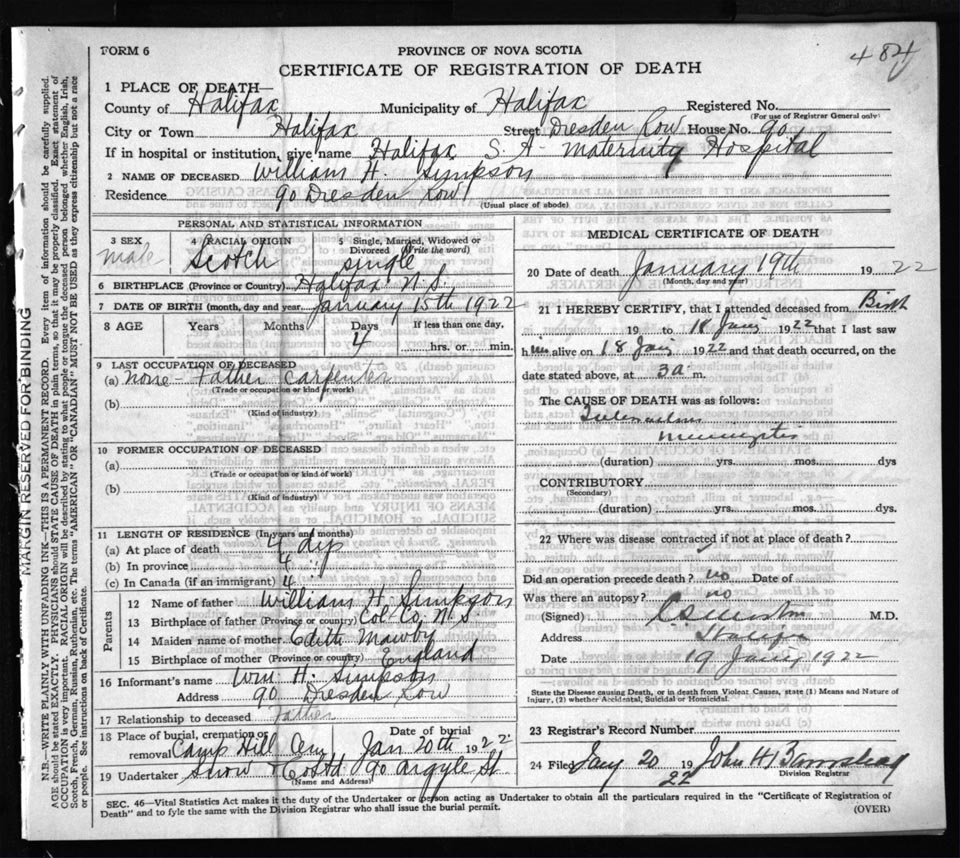 FORM 6
PROVINCE OF NOVA SCOTIA
484
CERTIFICATE OF REGISTRATION OF DEATH
1 PLACE OF DEATH—
County of Halifax Municipality of Halifax Registered No.
(For use of Registrar General only)
City or Town Halifax Street Dresden Row House No. 90
If in hospital or institution, give name Halifax S A - Maternity Hospital
2 NAME OF DECEASED William H. Simpson
Residence 90 Dresden Row
(Usual place of abode)
PERSONAL AND STATISTICAL INFORMATION
3 SEX 4 RACIAL ORIGIN 5 Single, Married, Widowed or Divorced (Write the word)
male Scotch single
6 BIRTHPLACE (Province or Country) Halifax N.S.
7 DATE OF BIRTH (month, day and year) January 15th 1922
8 AGE Years Months Days If less than one day.
4 hrs. or min.
9 LAST OCCUPATION OF DECEASED
(a) none - Father Carpenter
(Trade or occupation or kind of work)
(b)
(Kind of industry)
10 FORMER OCCUPATION OF DECEASED
(a)
(Trade or occupation or kind of work)
(b)
(Kind of industry)
11 LENGTH OF RESIDENCE (In years and months)
(a) At place of death 4 dys
(b) In province 4 "
(c) In Canada (if an immigrant) 4
Parents
12 Name of father William H. Simpson
13 Birthplace of father (Province or country) Col. Co. N.S
14 Maiden name of mother Edith Mawby
15 Birthplace of mother (Province or country) England
16 Informant's name Wm H. Simpson
Address 90 Dresden Row
17 Relationship to deceased Father
18 Place of burial, cremation or removal Camp Hill Cem Date of burial Jan 20th 1922
19 Undertaker Snow & Co Ltd 90 Argyle St.
(Name and Address)
MEDICAL CERTIFICATE OF DEATH
20 Date of death January 19th 1922
(Month, day and year)
21 I HEREBY CERTIFY, that I attended deceased from Birth
19 to 18 Jany 1922 that I last saw
him alive on 18 Jany 1922 and that death occurred, on the
date stated above, at 3 a m.
The CAUSE OF DEATH was as follows:
(duration) yrs. mos. dys
CONTRIBUTORY
(Secondary)
(duration) yrs. mos. dys.
22 Where was disease contracted if not at place of death?
Did an operation precede death? no Date of
Was there an autopsy? no
(Signed) M.D.
Address Halifax
Date 19 Jany 1922
State the Disease causing Death, or in death from Violent Causes, state (1) Means and Nature of Injury, (2) whether Accidental, Suicidal or Homicidal.
23 Registrar's Record Number
24 Filed Jany 20 1922 John H
Division Registrar
SEC. 46—Vital Statistics Act makes it the duty of the Undertaker or person acting as Undertaker to obtain all the particulars required in the "Certificate of Registration of
Death" and to fyle the same with the Division Registrar who shall issue the burial permit.
(OVER)
MARGIN RESERVED FOR BINDING
N.B.—WRITE PLAINLY WITH UNFADING INK—THIS IS A PERMANENT RECORD. Every item of information should be carefully supplied.
AGE should be stated EXACTLY. PHYSICIANS should STATE CAUSE OF DEATH in plain terms, so that it may be properly classified. Exact statement of
OCCUPATION is very important. RACIAL ORIGIN will be described by stating to what people or tongue the deceased person belonged whether English, Irish,
Scotch, French, German, Russian, Ruthenian, etc. The terms "AMERICAN" OR "CANADIAN" MUST NOT BE USED as they express citizenship but not a race
or people. See instructions on back of Certificate.